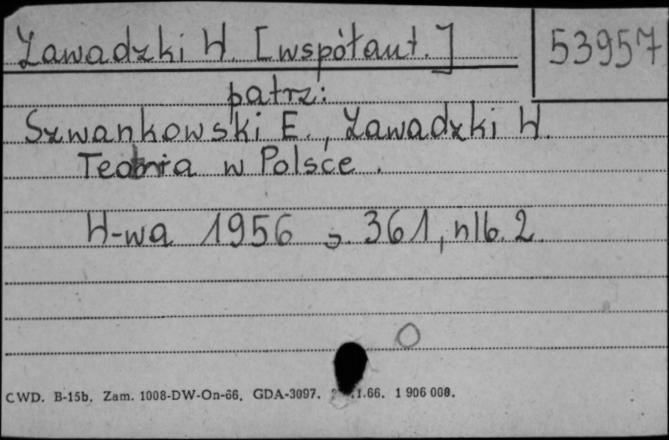 Zawadzki W. [współaut.]
53957
patrz:
Szwankowski E., Zawadzki W.
w Polsce.
W-wa 1956 s. 361, nlb. 2.
CWD. B-15b. Zam. 1008-DW-On-66. GDA-3097. 1.66. 1 906 000.